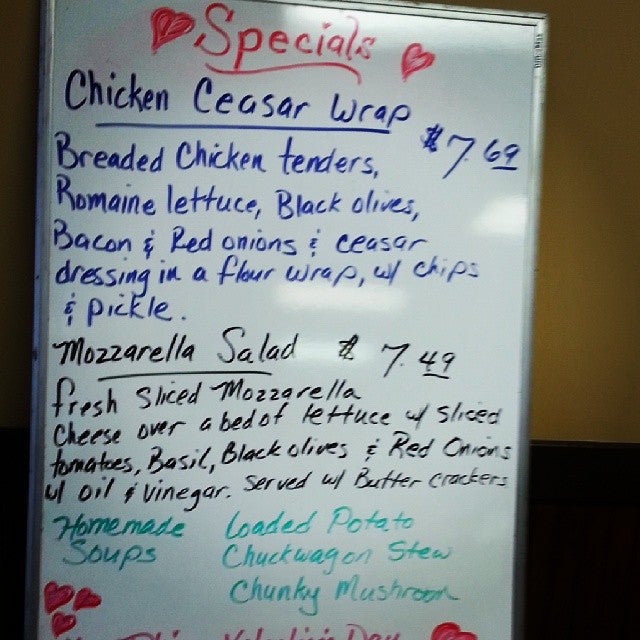 Specials
Chicken Ceasar Wrap $7.69
Breaded Chicken tenders,
Romaine lettuce, Black olives,
Bacon & Red onions & ceasar
dressing in a flour wrap, w/ chips
& pickle.
Mozzarella Salad $7.49
fresh Sliced Mozzarella
Cheese over a bed of lettuce w/ sliced
tomatoes, Basil, Black olives & Red Onions
w/ oil & vinegar. Served w/ Butter crackers
Homemade Loaded Potato
Soups Chuckwagon Stew
Chunky Mushroom
This Valentine's Day